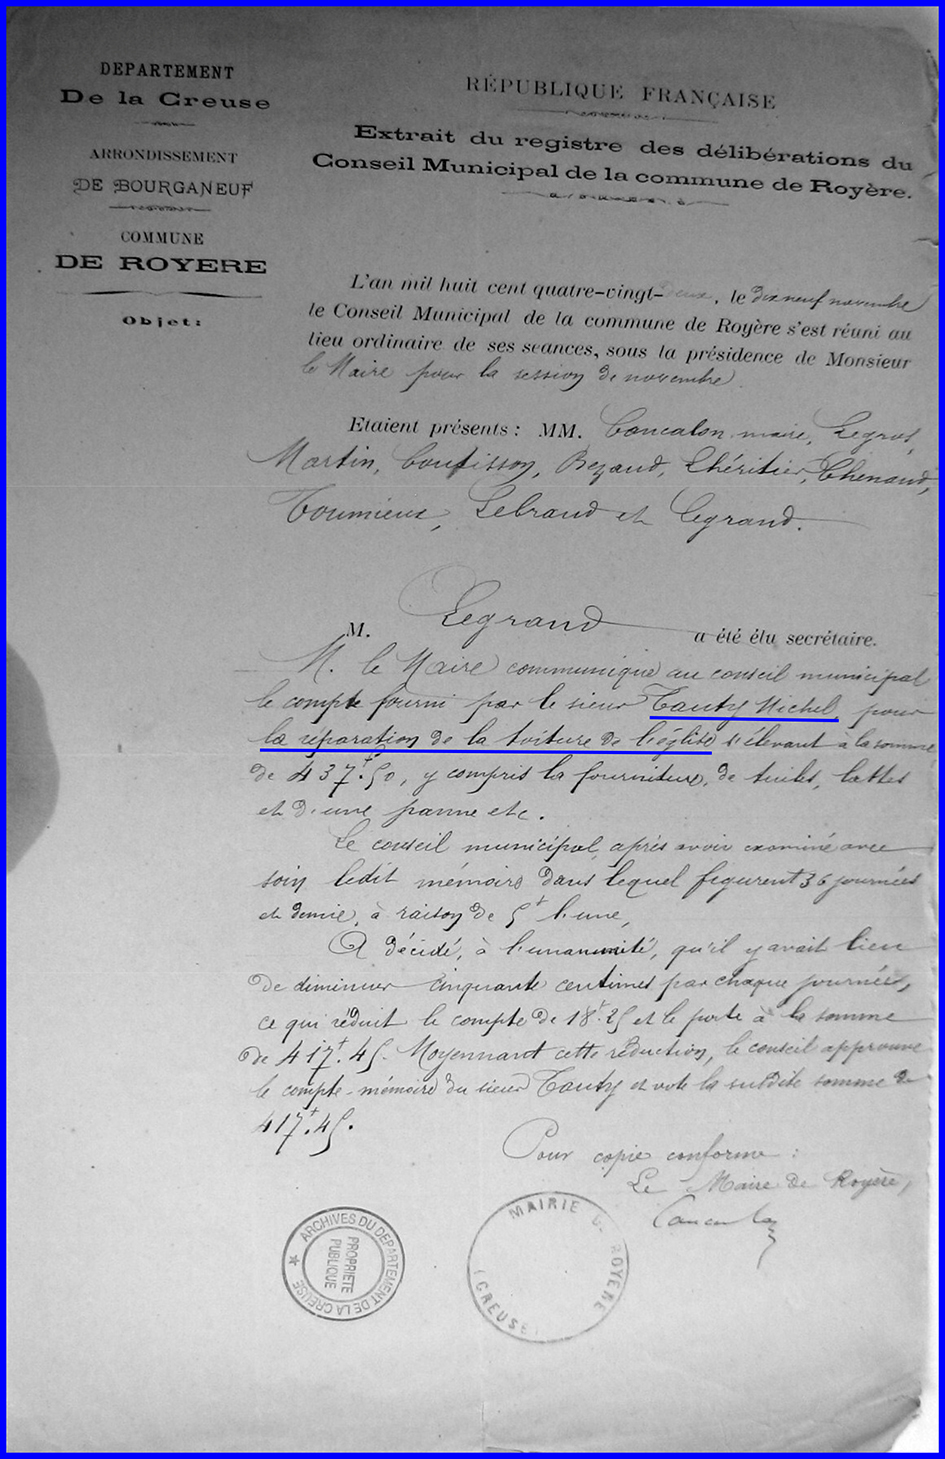 DEPARTEMENT
De la Creuse
ARRONDISSEMENT
DE BOURGANEUF
COMMUNE
DE ROYERE
Objet:
RÉPUBLIQUE FRANÇAISE
Extrait du registre des délibérations du
Conseil Municipal de la commune de Royère.
L'an mil huit cent quatre-vingt-deux, le dix neuf novembre
le Conseil Municipal de la commune de Royère s'est réuni au
lieu ordinaire de ses séances, sous la présidence de Monsieur
le Maire pour la session de novembre
Etaient présents: MM. Coucalon maire, Legros,
Martin, Coutisson, Bezaud, Lhéritier, Chenaud,
Toumieux, Lebraud et Legrand.
M. Legrand a été élu secrétaire.
M. le Maire communique au conseil municipal
le compte fourni par le sieur Tauty Michel, pour
la réparation de la toiture de l'église s'élevant à la somme
de 437f.50, y compris la fourniture, de tuiles, lattes
et d'une panne etc.
Le conseil municipal, après avoir examiné avec
soin ledit mémoire dans lequel figurent 36 journées
et demie, à raison de 5f l'une,
A décidé, à l'unanimité, qu'il y avait lieu
de diminuer cinquante centimes par chaque journée,
ce qui réduit le compte de 18f.25 et le porte à la somme
de 417f.45. Moyennant cette réduction, le conseil approuve
le compte-mémoire du sieur Tauty et vote la susdite somme de
417f.45.
Pour copie conforme:
Le Maire de Royère,
ARCHIVES DU DEPARTEMENT DE LA CREUSE
PROPRIETE
PUBLIQUE
MAIRIE DE ROYERE
(CREUSE)